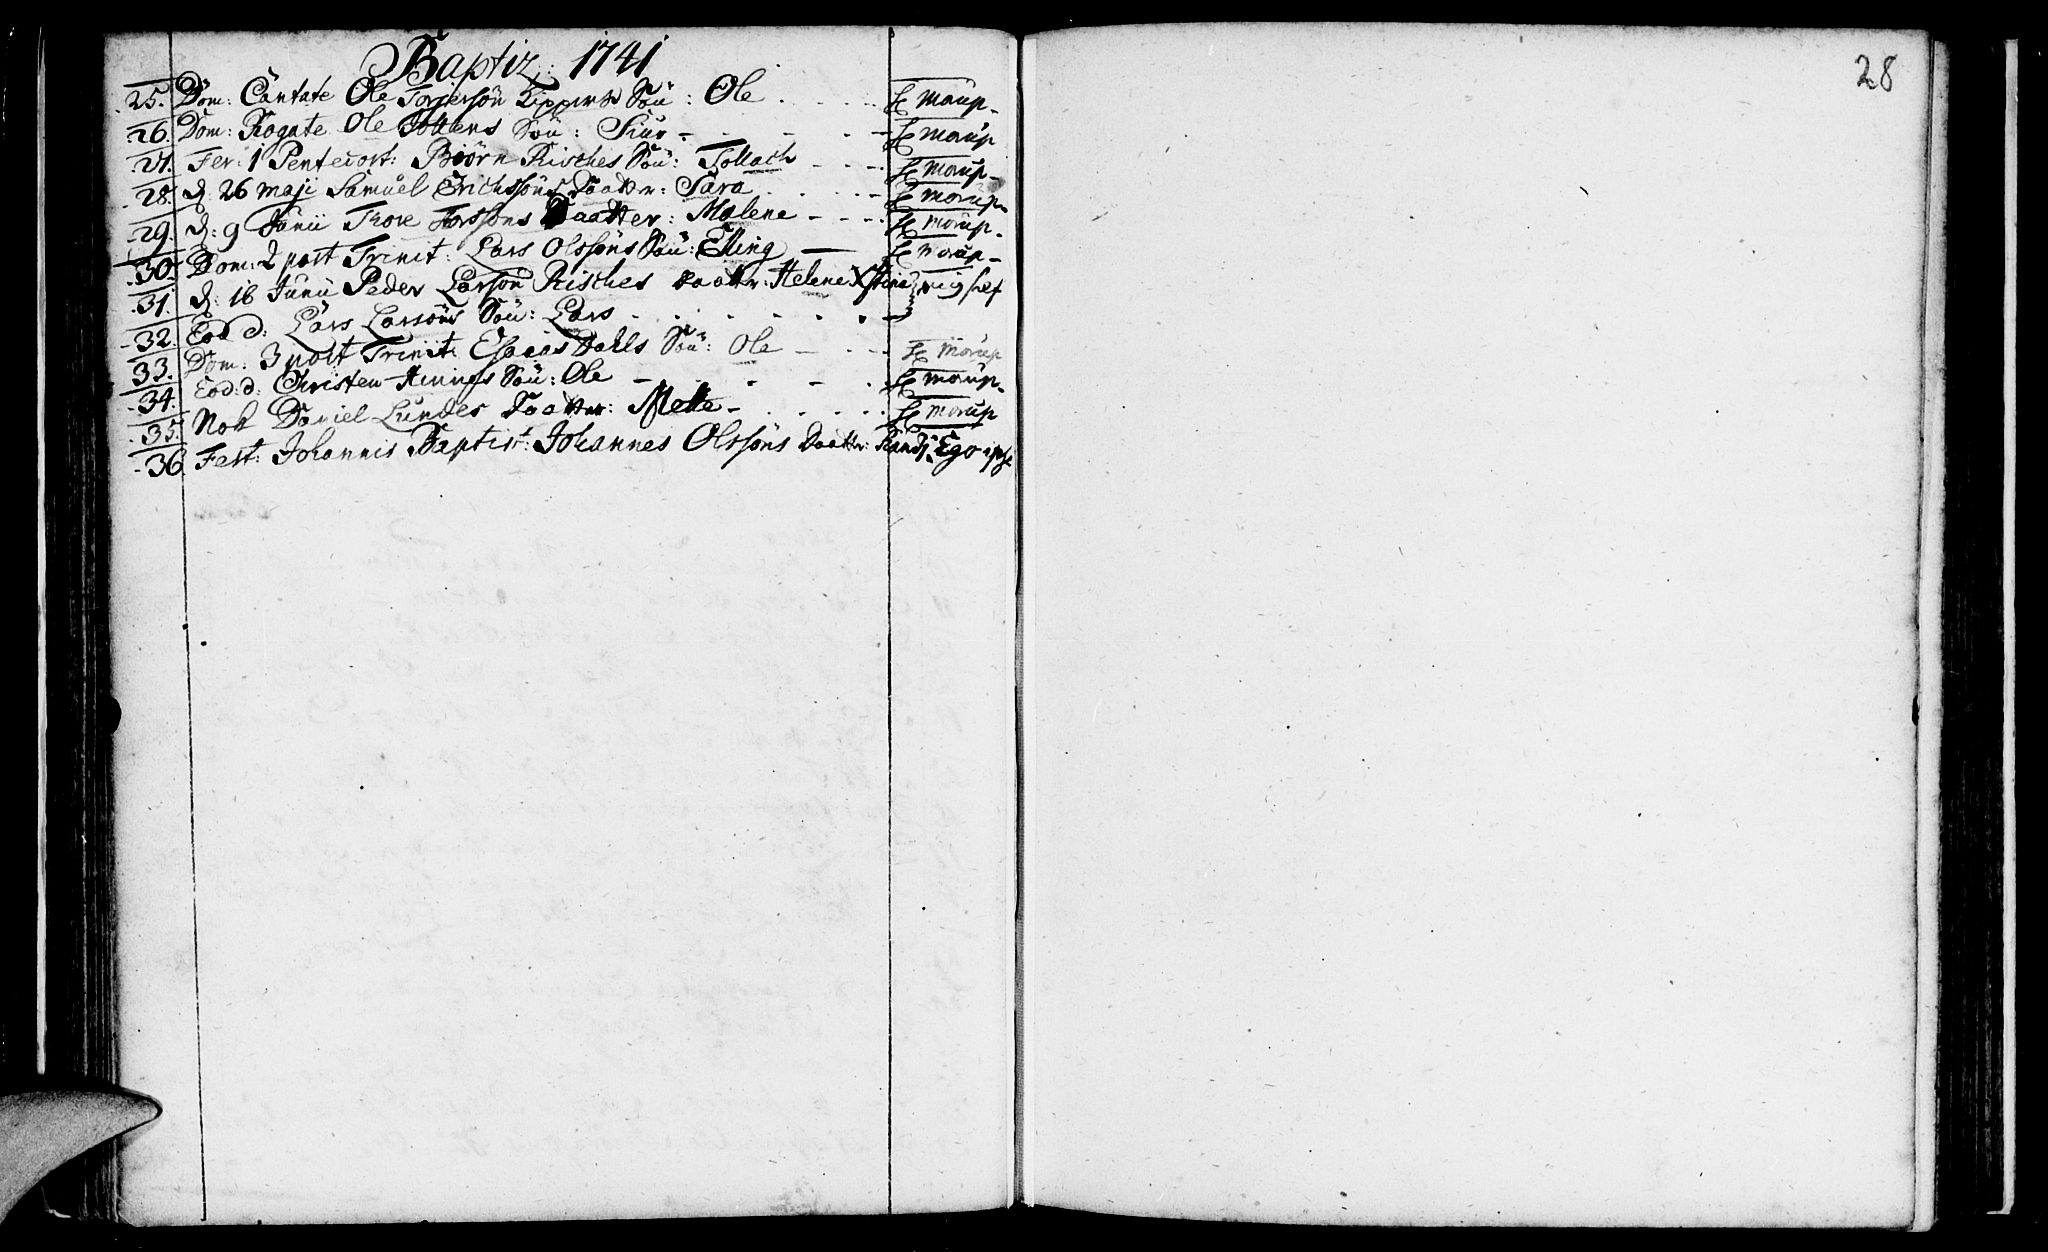 Baptiz: 1741
25. Dom: Cantate Ole Torgersön Söñ: Ole . . . . . H Morup-
26. Dom: Rogate Ole Söñ: Siur - . - . - H Morup
27. Fer: 1 Pentecost: Biörn Risches Söñ: Tollach . . . - H Morup-
28. d. 26 Maji Samuel Erichssöns Daatter: Sara . . . - H Morup-
29. d: 9 Junii Thore Daatter: Malene - . - . H Morup-
30. Dom: 2 post Trinit: Lars Olssöns Söñ: Elling — H Morup-
31. d: 16 Junii Peder Larsön Risches Daatter: Helene Xstine } mig self
32. Eod d: Lars Larsöns Söñ: Lars . . . . . . -
33. Dom: 3 post Trinit: Esaias Dahls Söñ: Ole - . - . H Morup
34. Eod: d: Christen Söñ: Ole - . . - . H Morup-
35. Nok Daniel Lundes Daatter: Mette - . . . . . H Morup
36 Fest: Johannis Baptist: Johannes Olssöns Daatter: Randj: Ego ipse
28